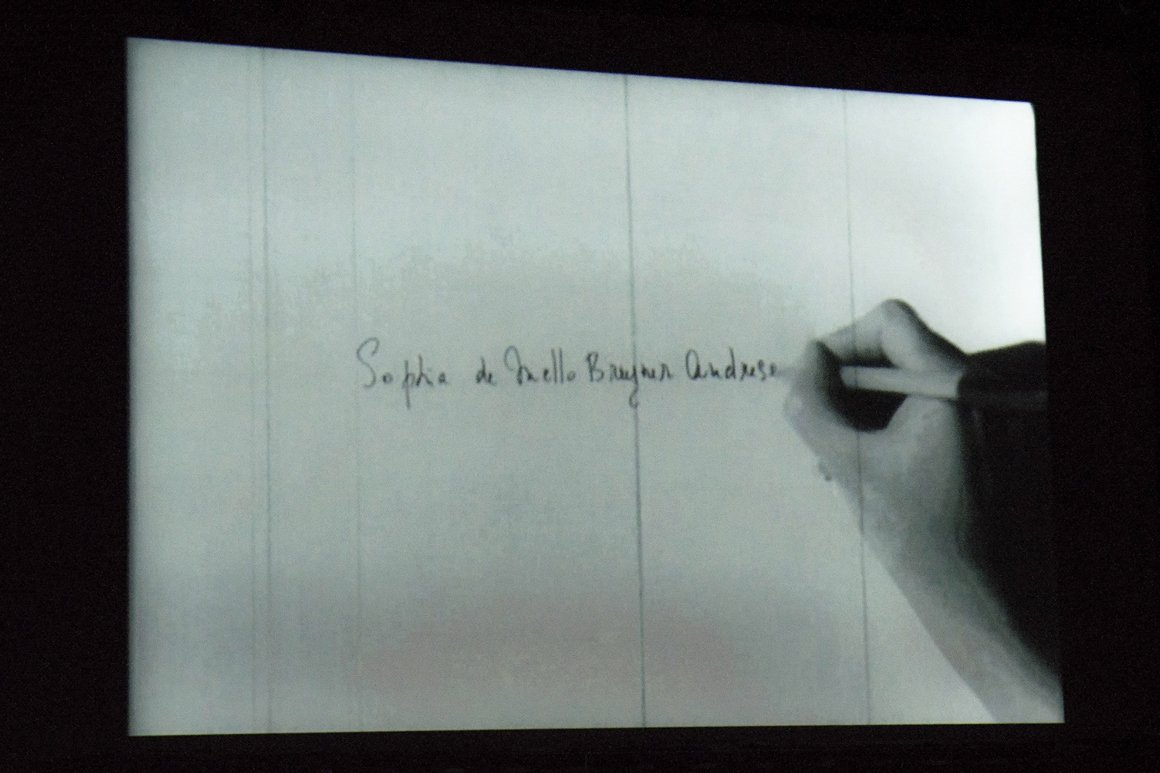 Sophia de Mello Breyner Andrese